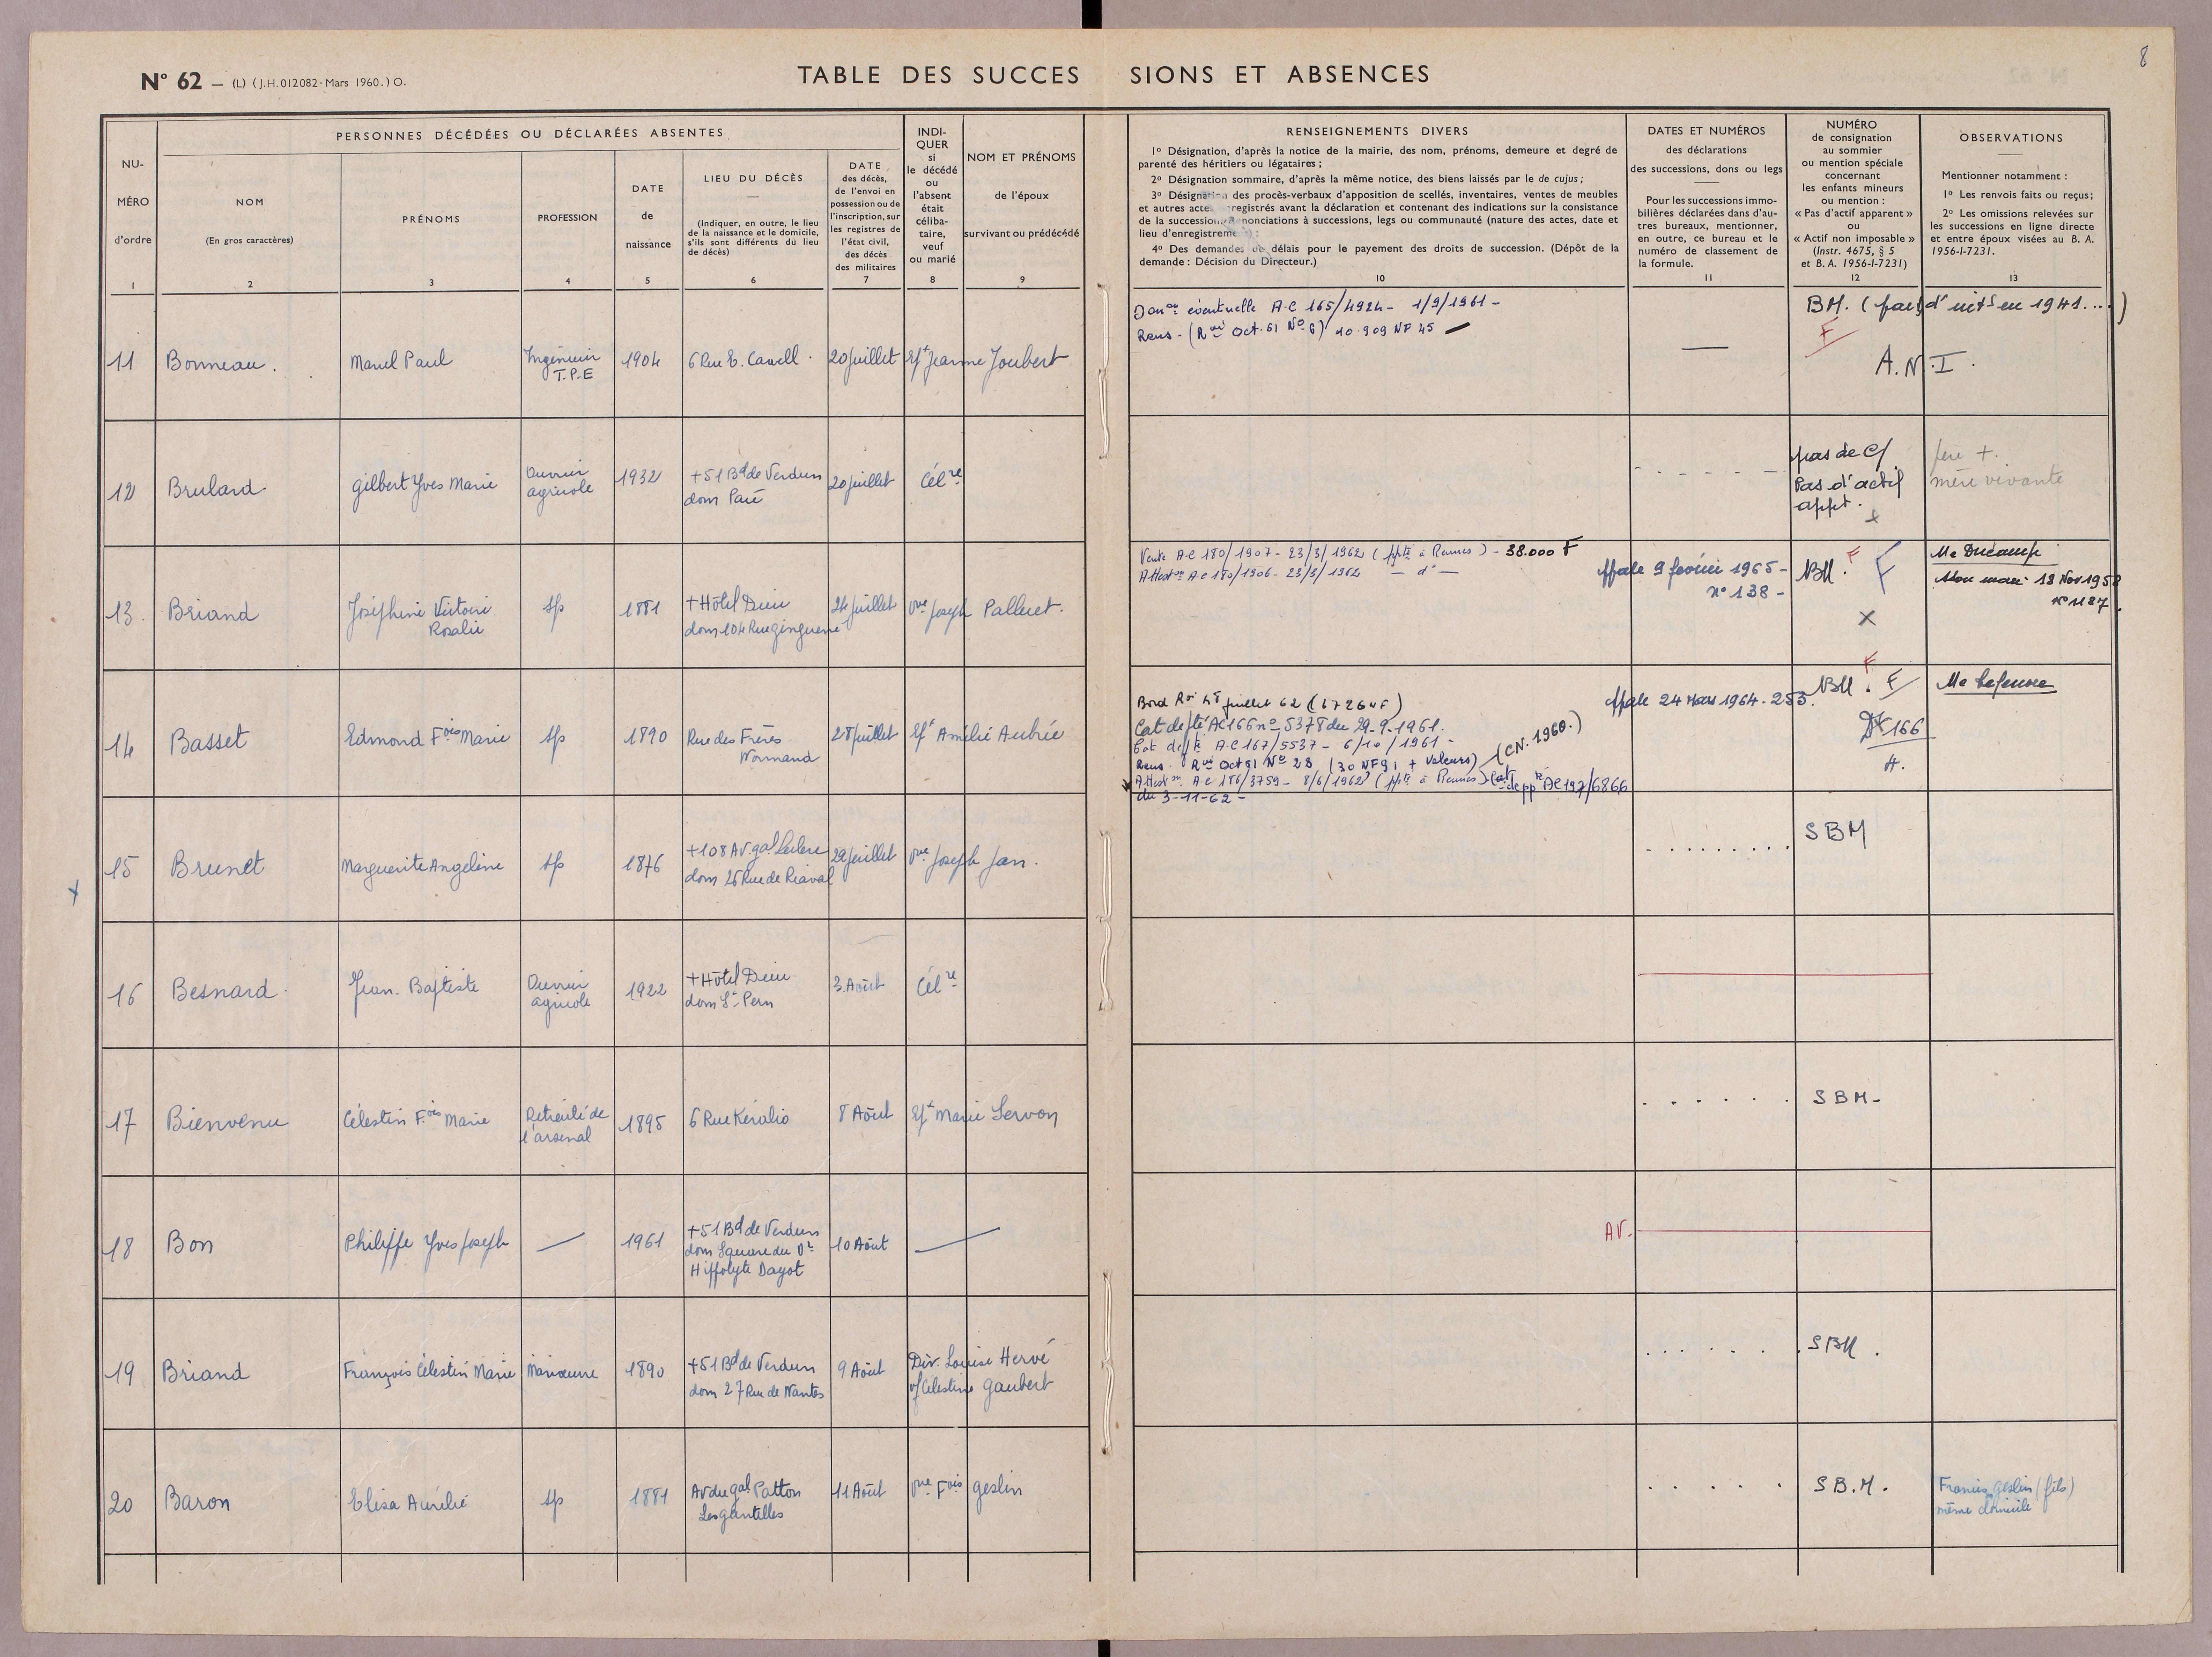 8
N° 62 — (L) (J.H. 012082- Mars 1960.) O.
TABLE DES SUCCES SIONS ET ABSENCES
NU-
MÉRO
d'ordre
1
PERSONNES DÉCÉDÉES OU DÉCLARÉES ABSENTES
NOM
(En gros caractères)
2
PRÉNOMS
3
PROFESSION
4
DATE
de
naissance
5
LIEU DU DÉCÈS
(Indiquer, en outre, le lieu
de la naissance et le domicile,
s'ils sont différents du lieu
de décès)
6
DATE
des décès,
de l'envoi en
possession ou de
l'inscription, sur
les registres de
l'état civil,
des décès
des militaires
7
INDI-
QUER
si
le décédé
ou
l'absent
était
céliba-
taire,
veuf
ou marié
8
NOM ET PRÉNOMS
de l'époux
survivant ou prédécédé
9
RENSEIGNEMENTS DIVERS
1° Désignation, d'après la notice de la mairie, des nom, prénoms, demeure et degré de
parenté des héritiers ou légataires ;
2° Désignation sommaire, d'après la même notice, des biens laissés par le de cujus ;
3° Désignation des procès-verbaux d'apposition de scellés, inventaires, ventes de meubles
et autres actes enregistrés avant la déclaration et contenant des indications sur la consistance
de la succession. Renonciations à successions, legs ou communauté (nature des actes, date et
lieu d'enregistrement) ;
4° Des demandes de délais pour le payement des droits de succession. (Dépôt de la
demande : Décision du Directeur.)
10
DATES ET NUMÉROS
des déclarations
des successions, dons ou legs
Pour les successions immo-
bilières déclarées dans d'au-
tres bureaux, mentionner,
en outre, ce bureau et le
numéro de classement de
la formule.
11
NUMÉRO
de consignation
au sommier
ou mention spéciale
concernant
les enfants mineurs
ou mention :
« Pas d'actif apparent »
ou
« Actif non imposable »
(Instr. 4675, § 5
et B. A. 1956-I-7231)
12
OBSERVATIONS
Mentionner notamment :
1° Les renvois faits ou reçus ;
2° Les omissions relevées sur
les successions en ligne directe
et entre époux visées au B. A.
1956-I-7231.
13
11 Bonneau. Marcel Paul
Ingénieur
T.P.E
1904 6 Rue E. Cavell. 20 juillet Ep^x Jeanne Joubert
Don^on éventuelle A.C 165/4924 - 1/9/1961 -
Rens - (R^oi Oct. 61 N° 6) 10.909 NF 45
BM.
F
A.N.I.
12 Brulard. Gilbert Yves Marie
Ouvrier
agricole
1932
+ 51 B^d de Verdun
dom Pacé
20 juillet Cél^re
pas de C/
Pas d'actif
appt.
père +.
mère vivante
13. Briand
Joséphine Victoire
Rosalie
sp 1881
+ Hôtel Dieu
dom 104 Rue Ginguené
24 juillet Vve Joseph Palluet.
Vente A.C 180/1907 - 23/3/1962 (appt à Rennes) - 38.000 F
Attest^on A.C 180/1906 - 23/3/1962 — d° —
9 février 1965 -
n° 138 -
BM. F F
X
Me Ducamp
Mon mari 18 Nov 1958
n° 1187
14 Basset Edmond F^ois Marie sp 1890
Rue des Frères
Normand
28 juillet Ep^x Amélie Aubrée
Cat de pté AC 166 n° 5378 du 29.9.1961.
A.C 167/5537 - 6/10/1961 -
Rens. R^oi Oct 61 N° 23 (30 NF 91 + Valeurs) (CN. 1960.)
Attest^on A.C 186/3759 - 8/6/1962 (appt à Rennes) AC 197/6866
du 3-11-62 -
24 Mars 1964. 253.
F
BM. F
166
Me Lefeuvre
15 Brunet Marguerite Angeline sp 1876
+ 108 Av. Gal Leclerc
dom 26 Rue de Riaval
29 juillet Vve Joseph Jan.
SBM
16 Besnard. Jean. Baptiste
Ouvrier
agricole
1922
+ Hôtel Dieu
dom St Pern
3 Août Cél^re
17 Bienvenu Célestin F^ois Marie
Retraité de
l'arsenal
1895 6 Rue Kéralio 8 Août Ep^x Marie Servon
SBM -
18 Bon Philippe Yves Joseph — 1961
+ 51 B^d de Verdun
dom Square du Dr
Hippolyte Dayot
10 Août —
AV.
19 Briand François Célestin Marie Manœuvre 1890
+ 51 B^d de Verdun
dom 27 Rue de Nantes
9 Août
Div. Louise Hervé
vf Célestine Gaubert
SBM.
20 Baron Elisa Aurélie sp 1881
Av du Gal Patton
Les Gantelles
11 Août Vve F^ois Geslin
S.B.M.
Francis Geslin (fils)
même domicile